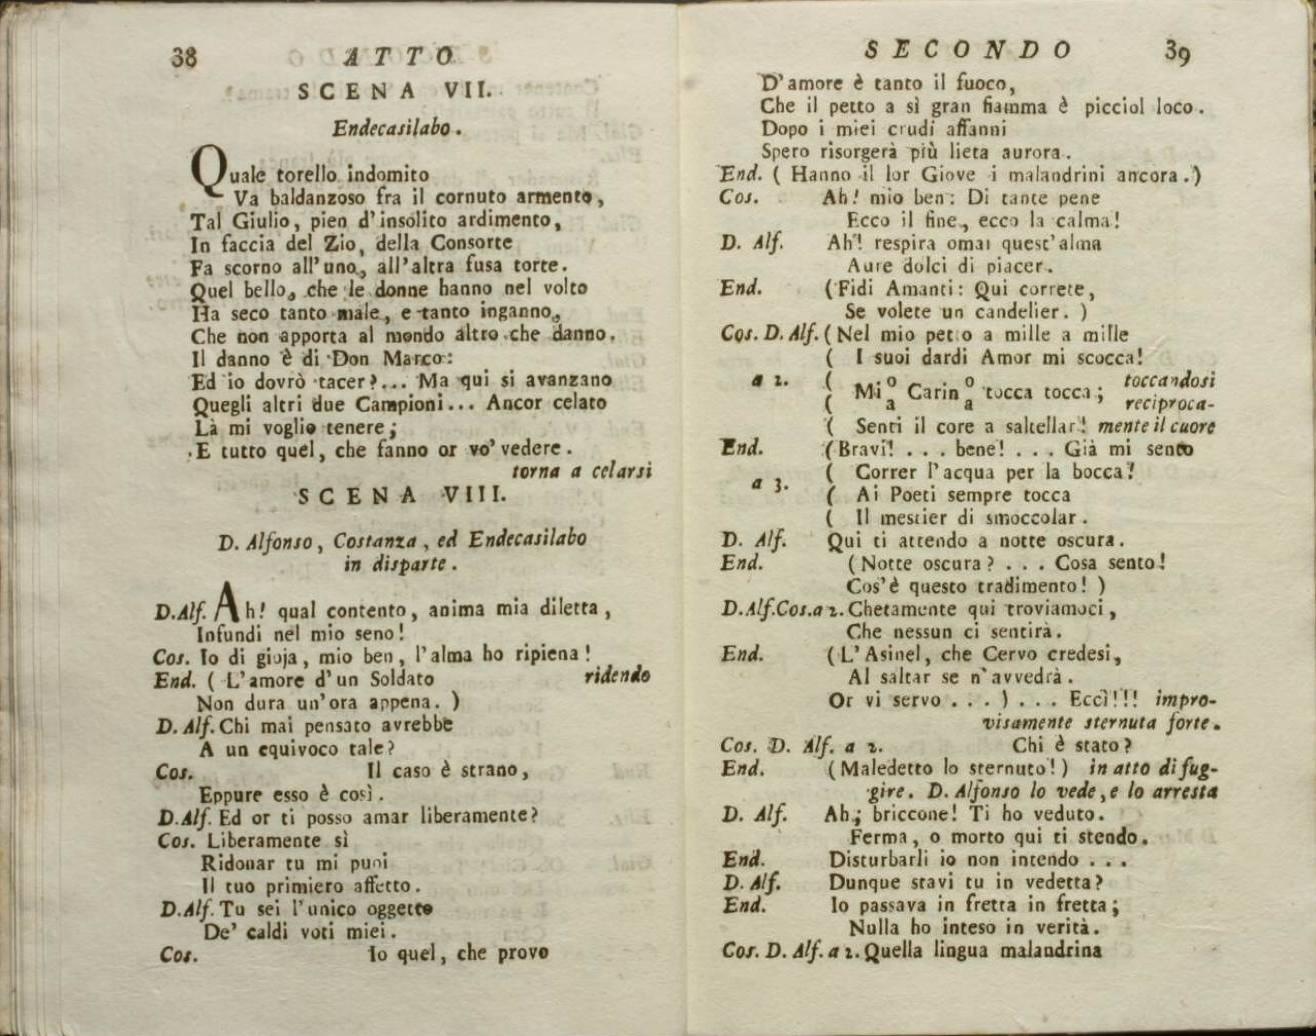 38 ATTO
SCENA VII.
Endecasilabo.
Quale torello indomito
Va baldanzoso fra il cornuto armento,
Tal Giulio, pien d'insolito ardimento,
In faccia del Zio, della Consorte
Fa scorno all'uno, all'altra fusa torte.
Quel bello, che le donne hanno nel volto
Ha seco tanto male, e tanto inganno,
Che non apporta al mondo altro che danno.
Il danno è di Don Marco:
Ed io dovrò tacer?... Ma qui si avanzano
Quegli altri due Campioni... Ancor celato
Là mi voglio tenere;
E tutto quel, che fanno or vo' vedere.
torna a celarsi
SCENA VIII.
D. Alfonso, Costanza, ed Endecasilabo
in disparte.
D.Alf. Ah! qual contento, anima mia diletta,
Infundi nel mio seno!
Cos. Io di gioja, mio ben, l'alma ho ripiena!
End. ( L'amore d'un Soldato ridendo
Non dura un'ora appena. )
D. Alf. Chi mai pensato avrebbe
A un equivoco tale?
Cos. Il caso è strano,
Eppure esso è così.
D.Alf. Ed or ti posso amar liberamente?
Cos. Liberamente sì
Ridonar tu mi puoi
Il tuo primiero affetto.
D.Alf. Tu sei l'unico oggetto
De' caldi voti miei.
Cos. Io quel, che provo
SECONDO 39
D'amore è tanto il fuoco,
Che il petto a sì gran fiamma è picciol loco.
Dopo i miei crudi affanni
Spero risorgerà più lieta aurora.
End. ( Hanno il lor Giove i malandrini ancora. )
Cos. Ah! mio ben: Di tante pene
Ecco il fine, ecco la calma!
D. Alf. Ah! respira omai quest'alma
Aure dolci di piacer.
End. (Fidi Amanti: Qui correte,
Se volete un candelier. )
Cos. D. Alf. (Nel mio petto a mille a mille
( I suoi dardi Amor mi scocca!
a 2. ( Mi o/a Carin o/a tocca tocca; toccandosi
( reciproca-
( Senti il core a saltellar! mente il cuore
End. (Bravi! . . . bene! . . . Già mi sento
( Correr l'acqua per la bocca!
a 3. ( Ai Poeti sempre tocca
( Il mestier di smoccolar.
D. Alf. Qui ti attendo a notte oscura.
End. (Notte oscura? . . . Cosa sento!
Cos'è questo tradimento! )
D.Alf.Cos.a 2. Chetamente qui troviamoci,
Che nessun ci sentirà.
End. (L'Asinel, che Cervo credesi,
Al saltar se n'avvedrà.
Or vi servo . . . ) . . . Eccì!!! impro-
visamente sternuta forte.
Cos. D. Alf. a 2. Chi è stato?
End. (Maledetto lo sternuto!) in atto di fug-
gire. D. Alfonso lo vede, e lo arresta
D. Alf. Ah; briccone! Ti ho veduto.
Ferma, o morto qui ti stendo.
End. Disturbarli io non intendo . . .
D. Alf. Dunque stavi tu in vedetta?
End. Io passava in fretta in fretta;
Nulla ho inteso in verità.
Cos. D. Alf. a 2. Quella lingua malandrina